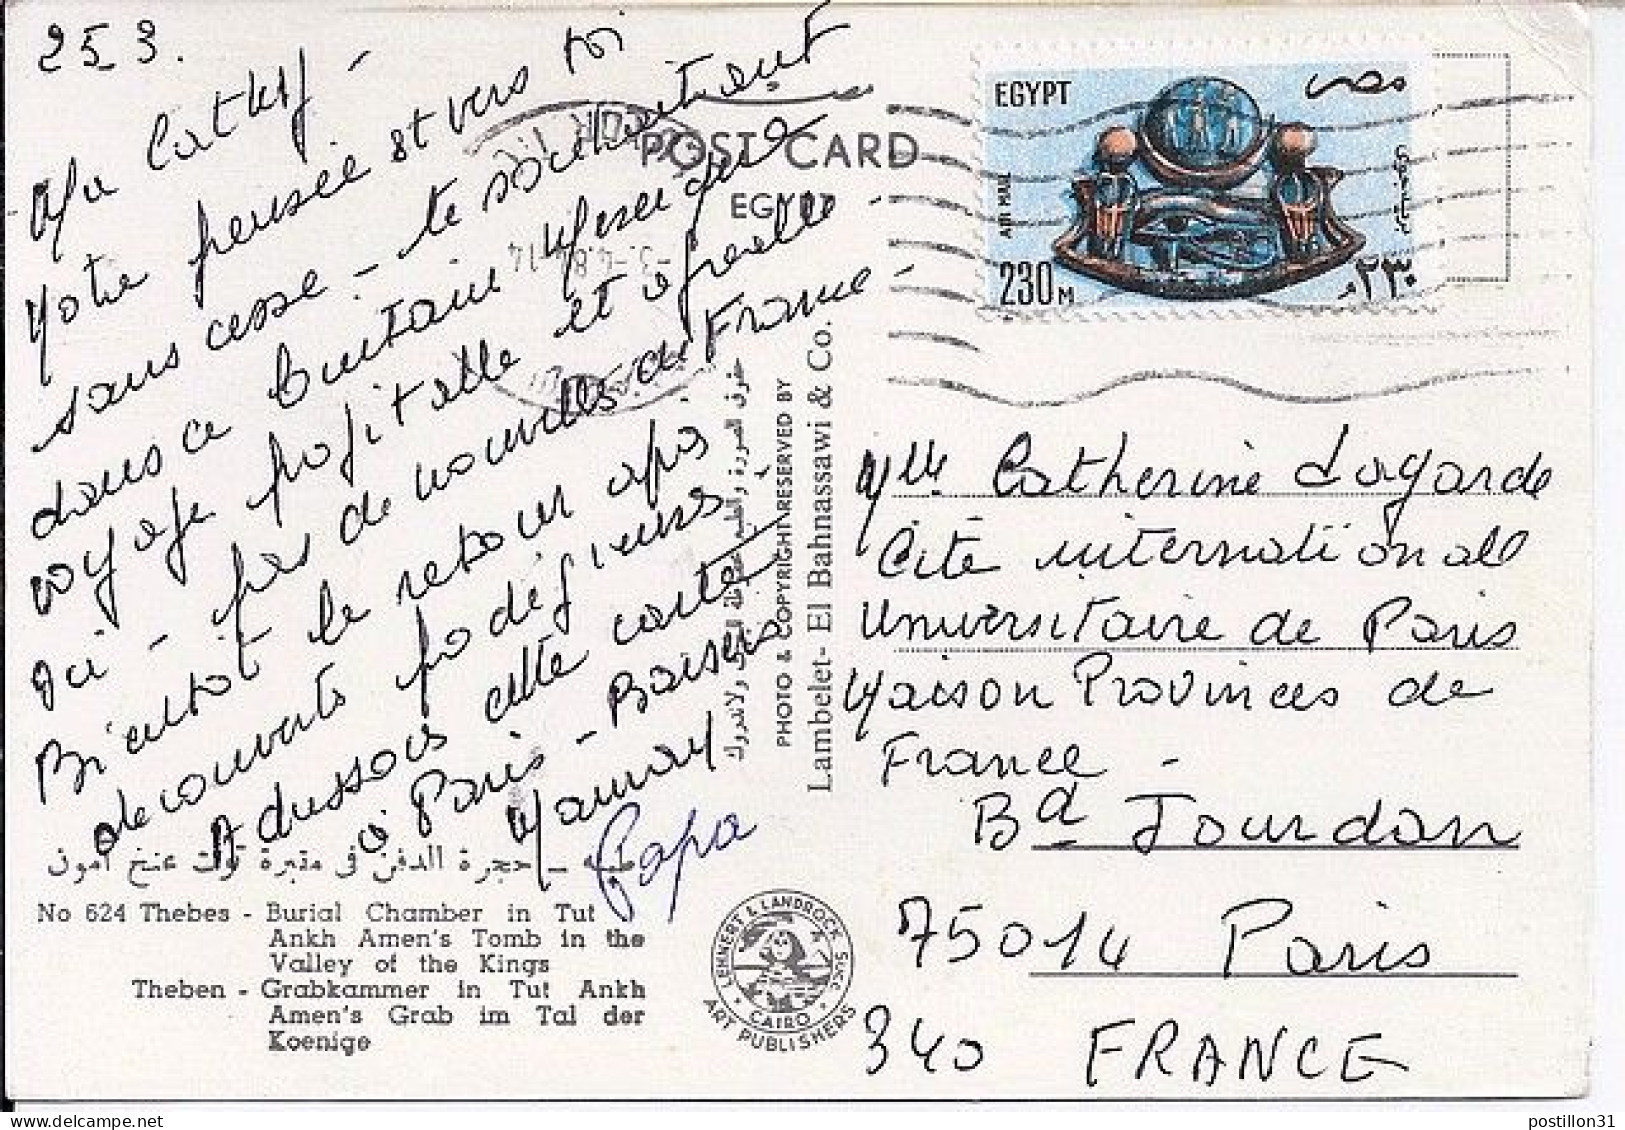 25 3.
Ma Cathy -
Notre pensée est vers toi
sans cesse - te souhaitant
dans ce lointain
voyage profitable et agréable -
Ici - pas de nouvelles de France -
Bientôt le retour après
découverts prodigieuses -
Adressons cette carte
à Paris - Baisers
Maman
Papa
POST CARD
EGYPT
-3.-4.84-14
EGYPT
مصر
AIR MAIL
230 M
٢٣٠ م
PHOTO & COPYRIGHT RESERVED BY
Lambelet- El Bahnassawi & Co.
Mlle Catherine Lagarde
Cité international
Universitaire de Paris
Maison Provinces de
France -
Bd Jourdan
75014 Paris
340 FRANCE
طيبة – حجرة الدفن فى مقبرة توت عنخ آمون
No 624 Thebes - Burial Chamber in Tut
Ankh Amen's Tomb in the
Valley of the Kings
Theben - Grabkammer in Tut Ankh
Amen's Grab im Tal der
Koenige
LEHNERT & LANDROCK SUCC
CAIRO
ART PUBLISHERS
postillon31